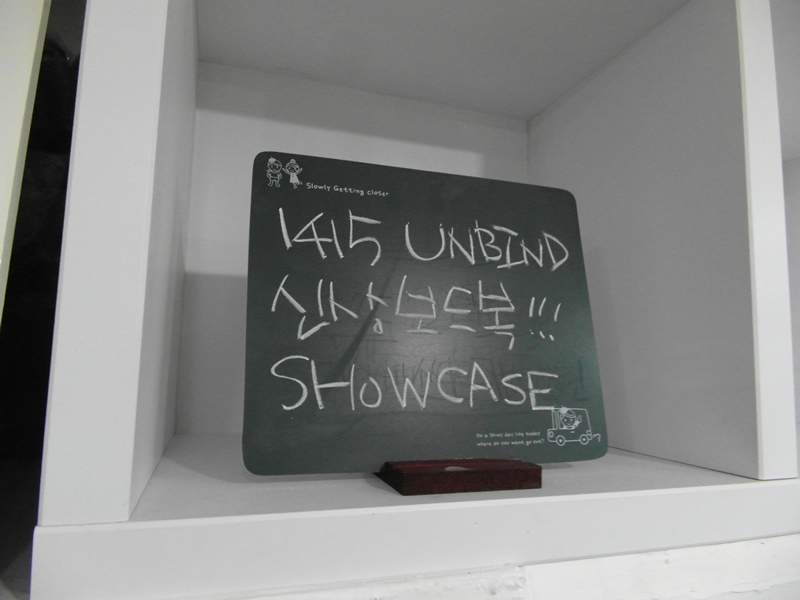 Slowly Getting closer
1415 UNBIND
신상보드복!!!
SHOWCASE
On a Shiny day like today
where do you want go out?